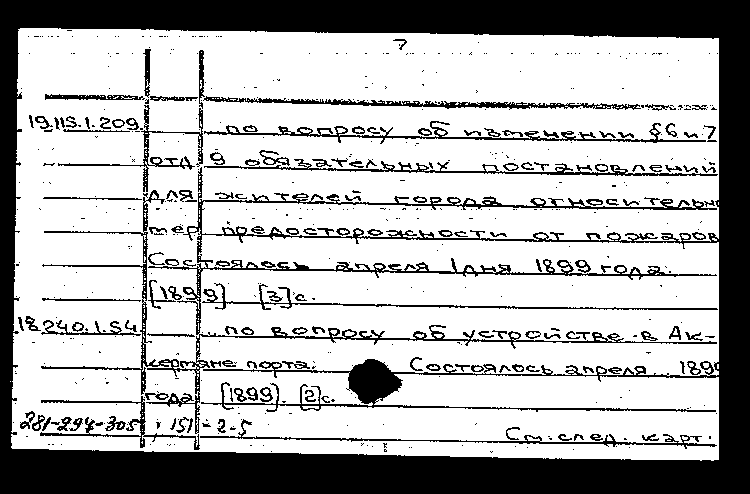 7
19.115.1.209. ...по вопросу об изменении §6 и 7
отд 9 обязательных постановлений
для жителей города относительно
мер предосторожности от пожаров
Состоялось апреля 1 дня 1899 года.
[1899] [3]с.
18.240.1.54. ...по вопросу об устройстве в Ак-
кермане порта. Состоялось апреля ... 1899
года [1899]. [2]с.
281-294-305 ; 151-2-5
См. след. карт.